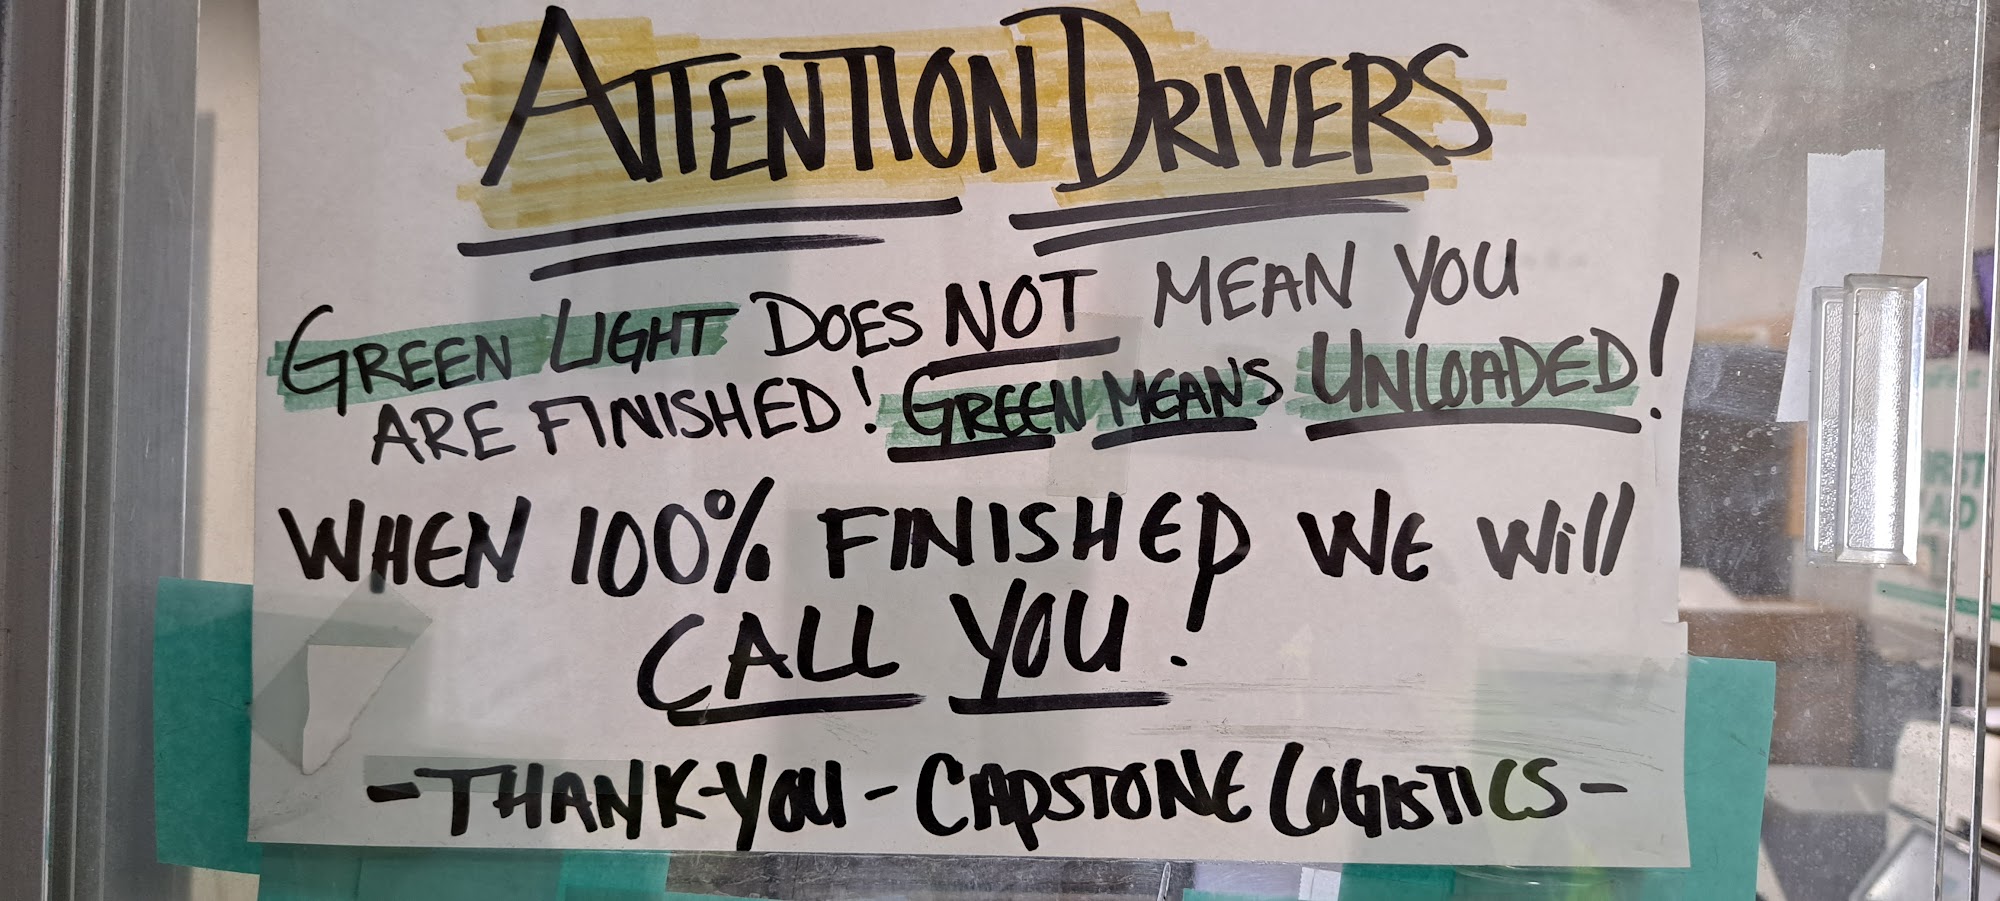 ATTENTION DRIVERS
GREEN LIGHT DOES NOT MEAN YOU
ARE FINISHED! GREEN MEANS UNLOADED!
WHEN 100% FINISHED WE Will
CALL YOU!
-THANK-YOU - CAPSTONE LOGISTICS -